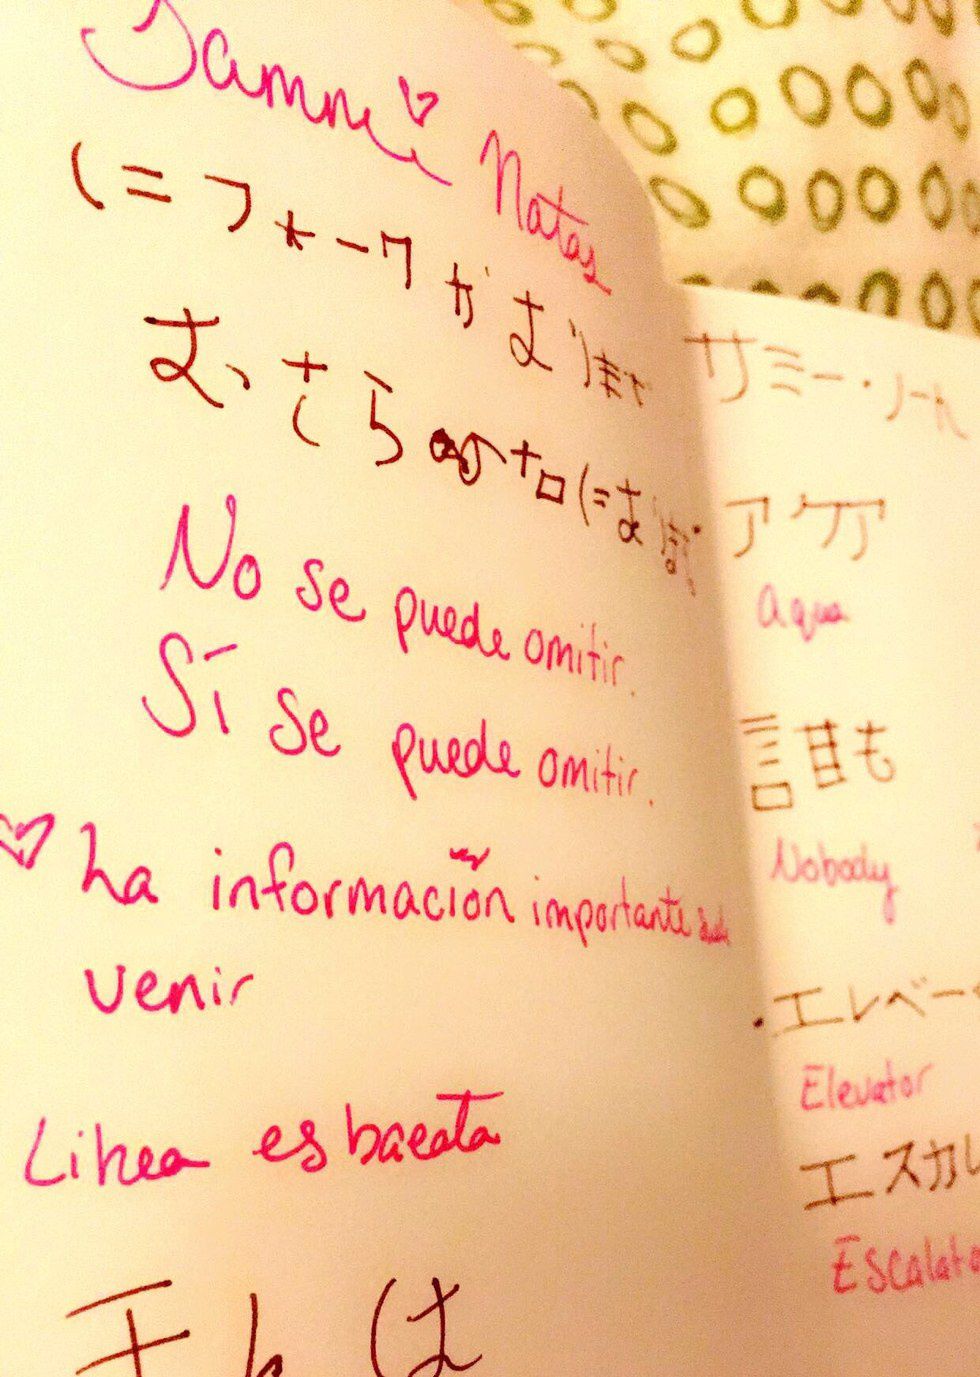 Natas
にフォークがあります
む、さら
No se puede omitir.
Sí se puede omitir.
La información importante
venir
Linea es baeata
は
サミー・ノート
アクア
aqua
誰も
Nobody
エレベー
Elevator
エスカレ
Escalato